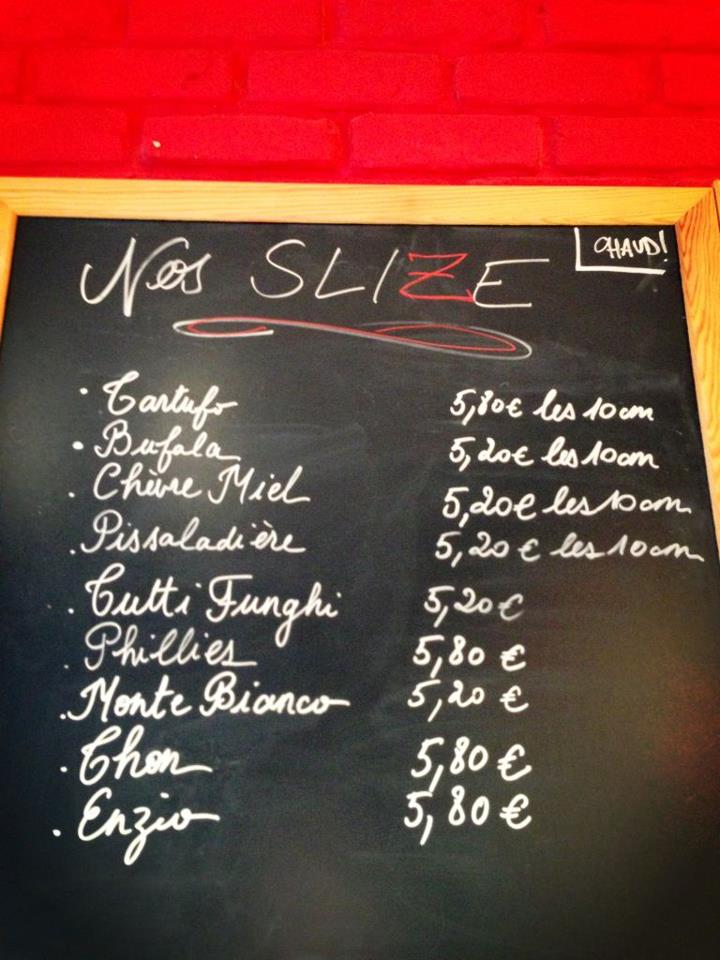 Nos SLIZE
CHAUD!
· Tartufo 5,80€ les 10cm
· Bufala 5,20€ les 10cm
· Chèvre Miel 5,20€ les 10cm
· Pissaladière 5,20€ les 10cm
· Tutti Funghi 5,20€
· Phillies 5,80€
· Monte Bianco 5,20€
· Thon 5,80€
· Enzio 5,80€